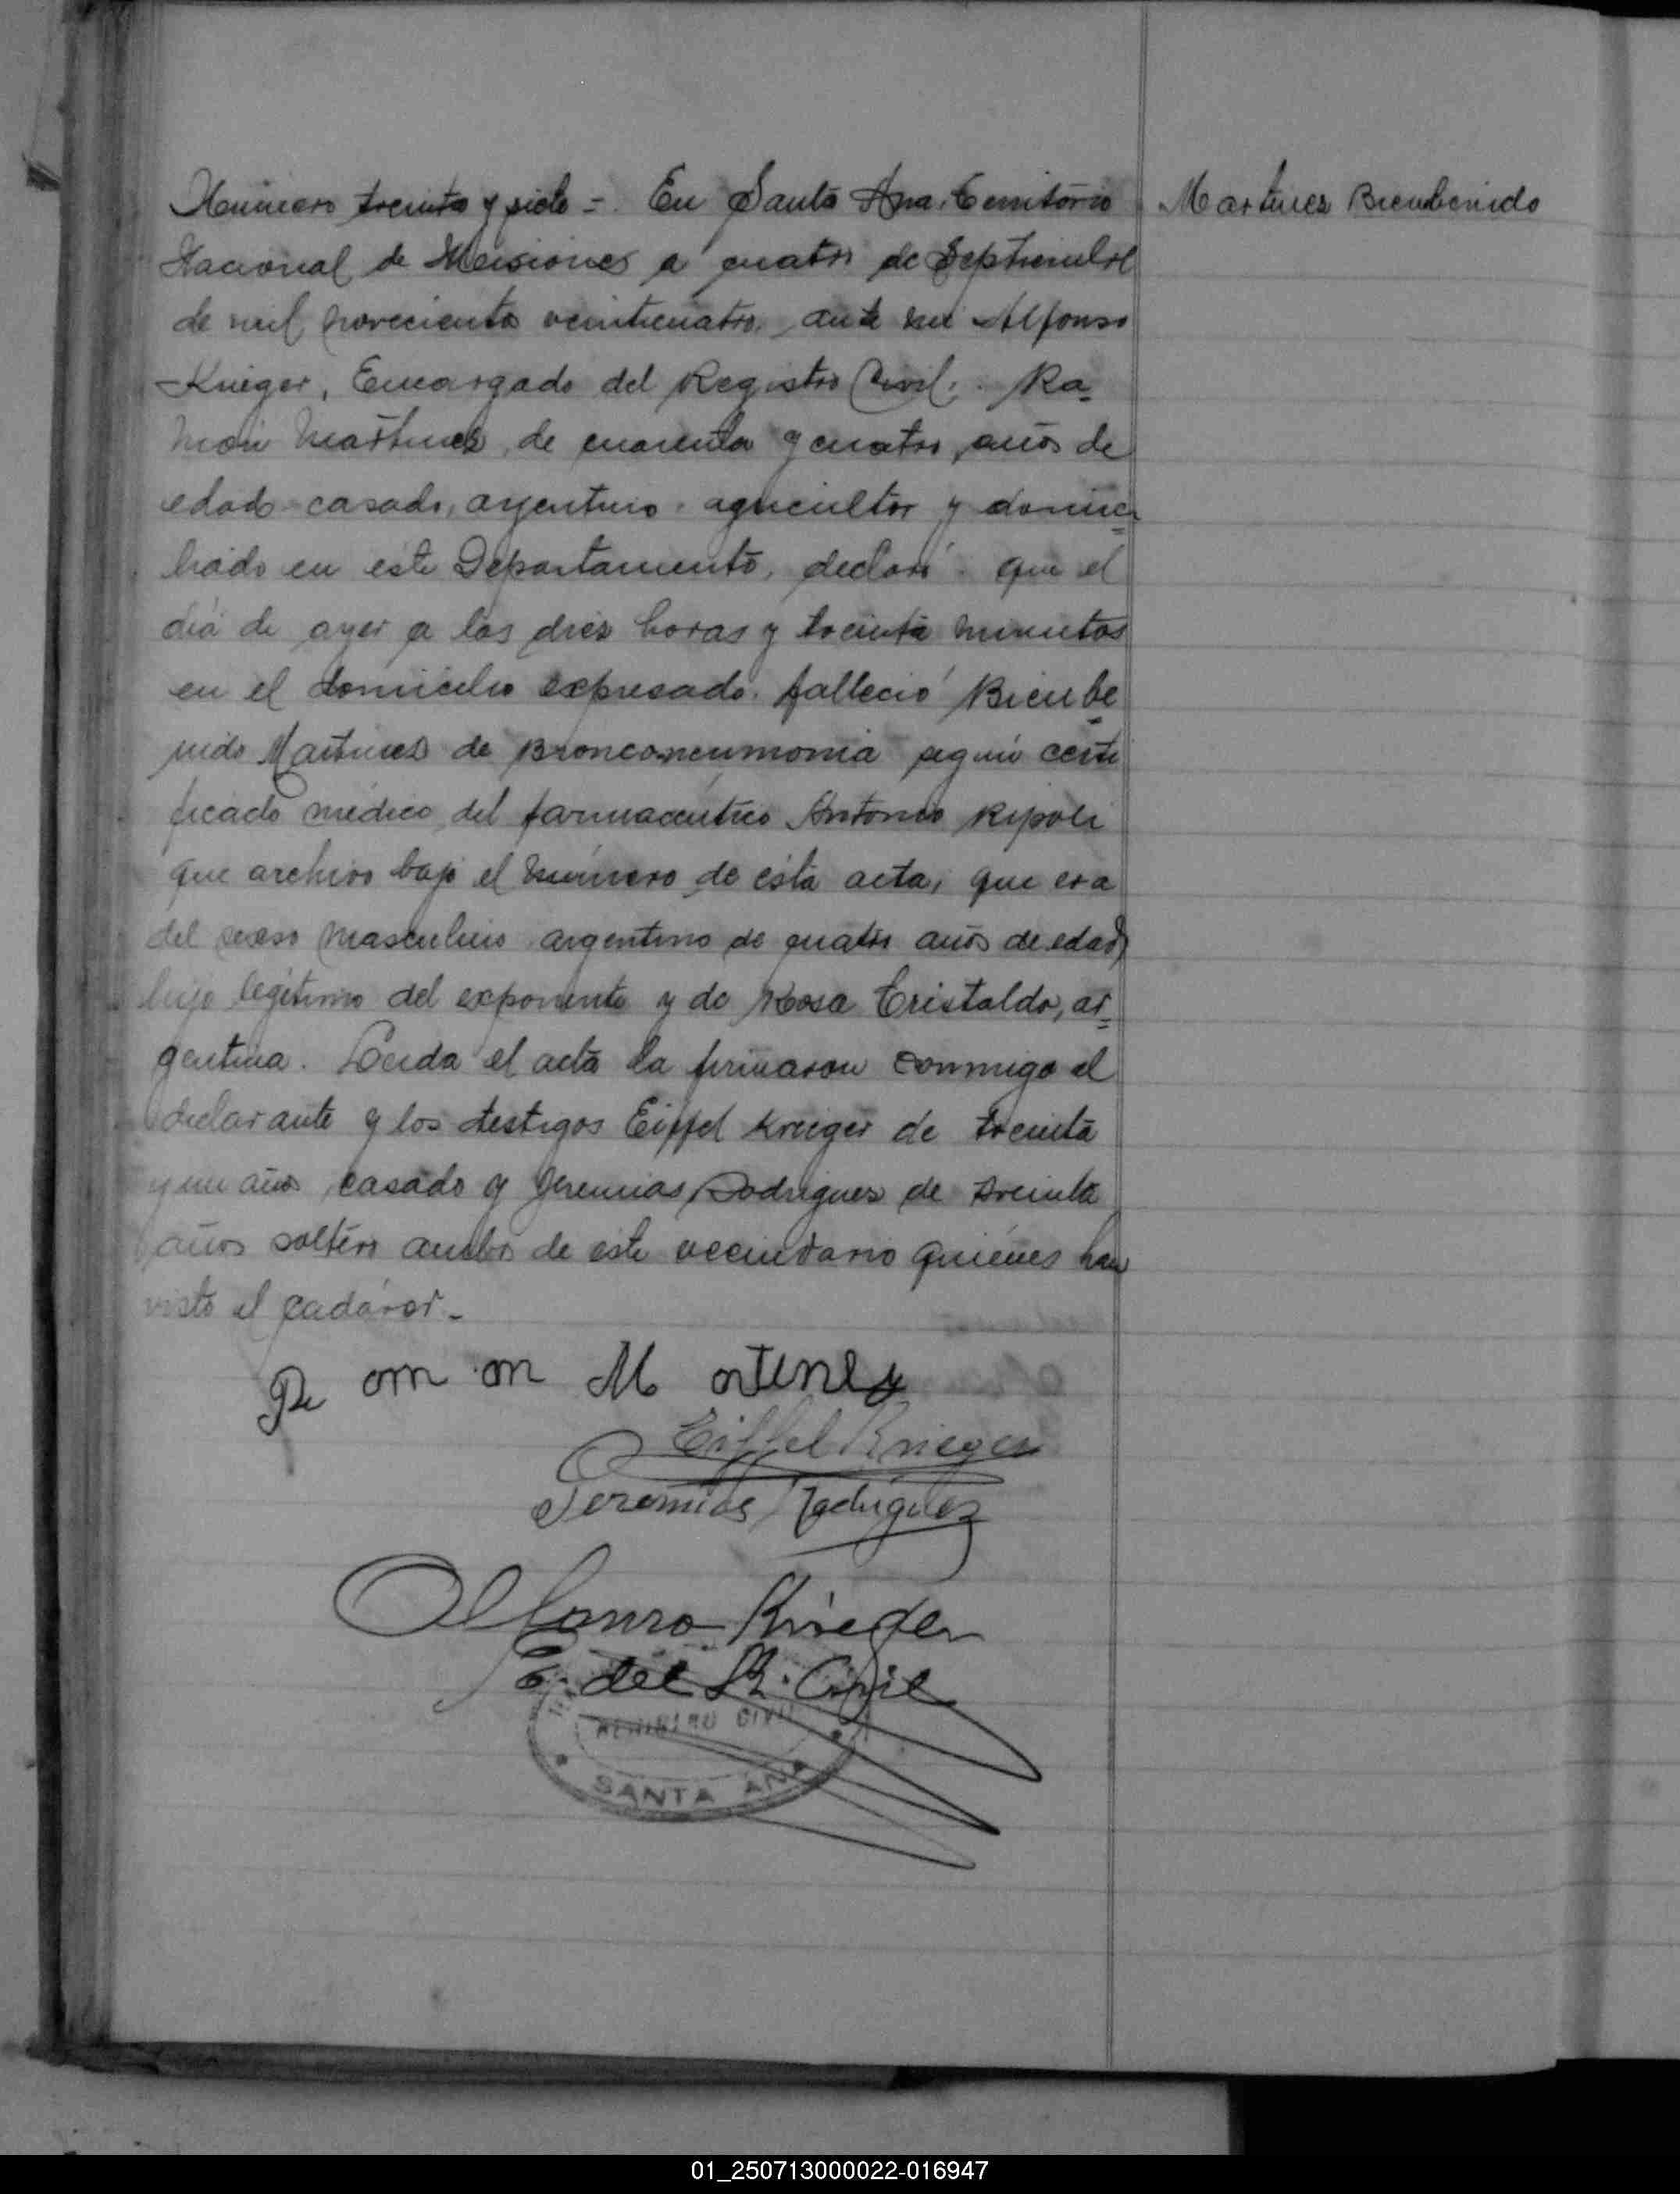 Número treinta y siete =. En Santa Ana, Territorio
Nacional de Misiones a cuatro de Septiembre
de mil novecientos veinticuatro, ante mi Alfonso
Krieger, Encargado del Registro Civil, Ra=
món Martinez, de cuarenta y cuatro, años de
edad casado, argentino, agricultor y domici=
liado en este Departamento, declaró que el
día de ayer a las diez horas y treinta minutos
en el domicilio expresado, falleció Bienbe=
nido Martinez de Bronconeumonia según certi
ficado médico del farmacéutico Antonio Ripoli
que archivo bajo el número de ésta acta, que era
del sexso masculino argentino de cuatro años de edad,
hijo legítimo del exponente y de Rosa Cristaldo, ar=
gentina. Leida el acta la firmaron conmigo el
declarante y los testigos Eiffel Krieger de treinta
y un años, casado y Jeremias Rodriguez de treinta
años soltero ambos de este vecindario quiénes han
visto el cadáver.-
Martinez Bienbenido
Ra mon M artinez
Eiffel Krieger
Jeremias Rodriguez
Alfonso Krieger
E. del R. Civil
REGISTRO CIVIL
SANTA ANA
01_250713000022-016947